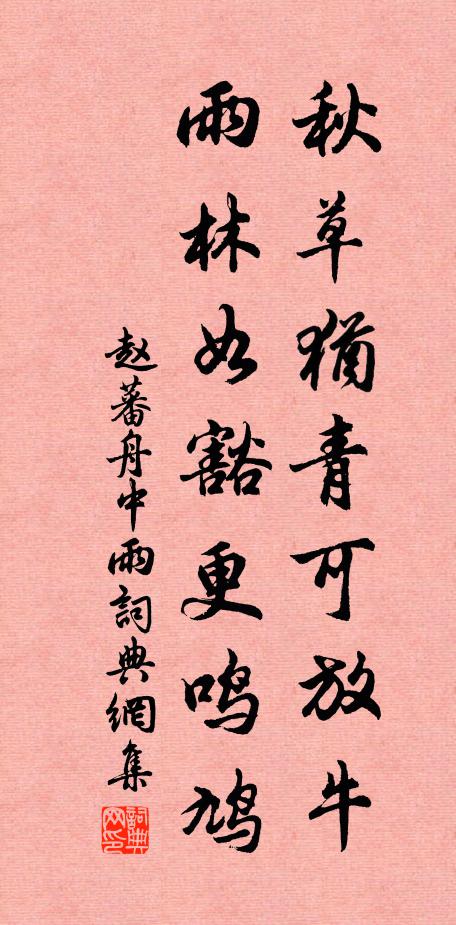 秋草猶青可放牛
雨林如豁更鸣鸠
赵蕃舟中雨詞典網集
詞典网印